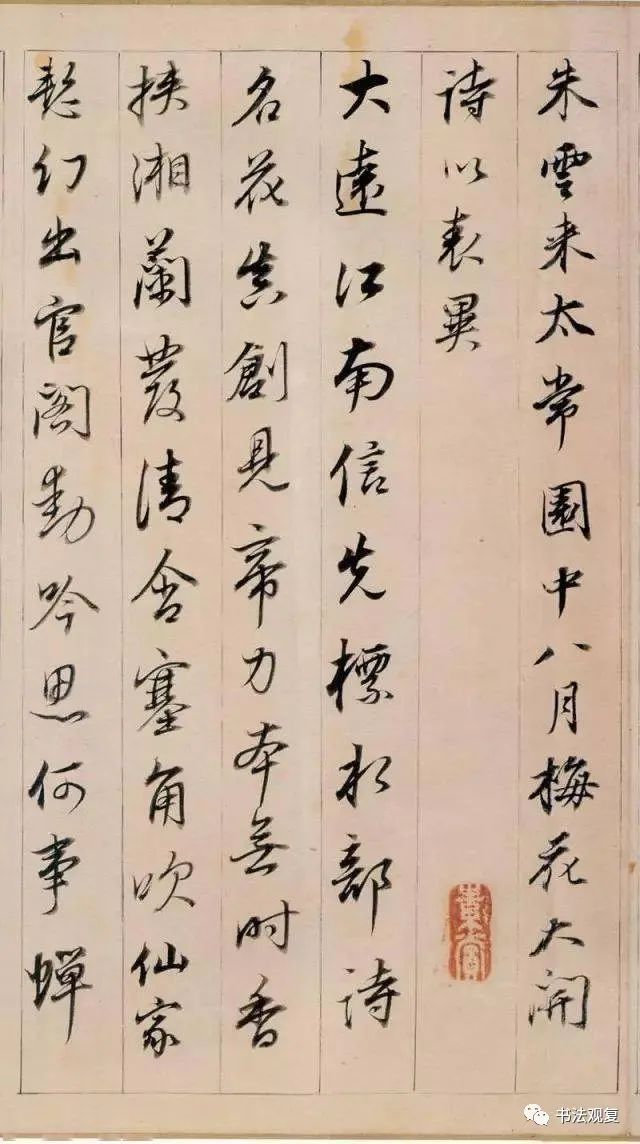 朱雲来太常園中八月梅花大開
詩以表異
大遠江南信先標水部詩
名花真創見帝力本無时香
挟湘蘭發清含塞角吹仙家
幻出官閣動吟思何事蟬
书法观复